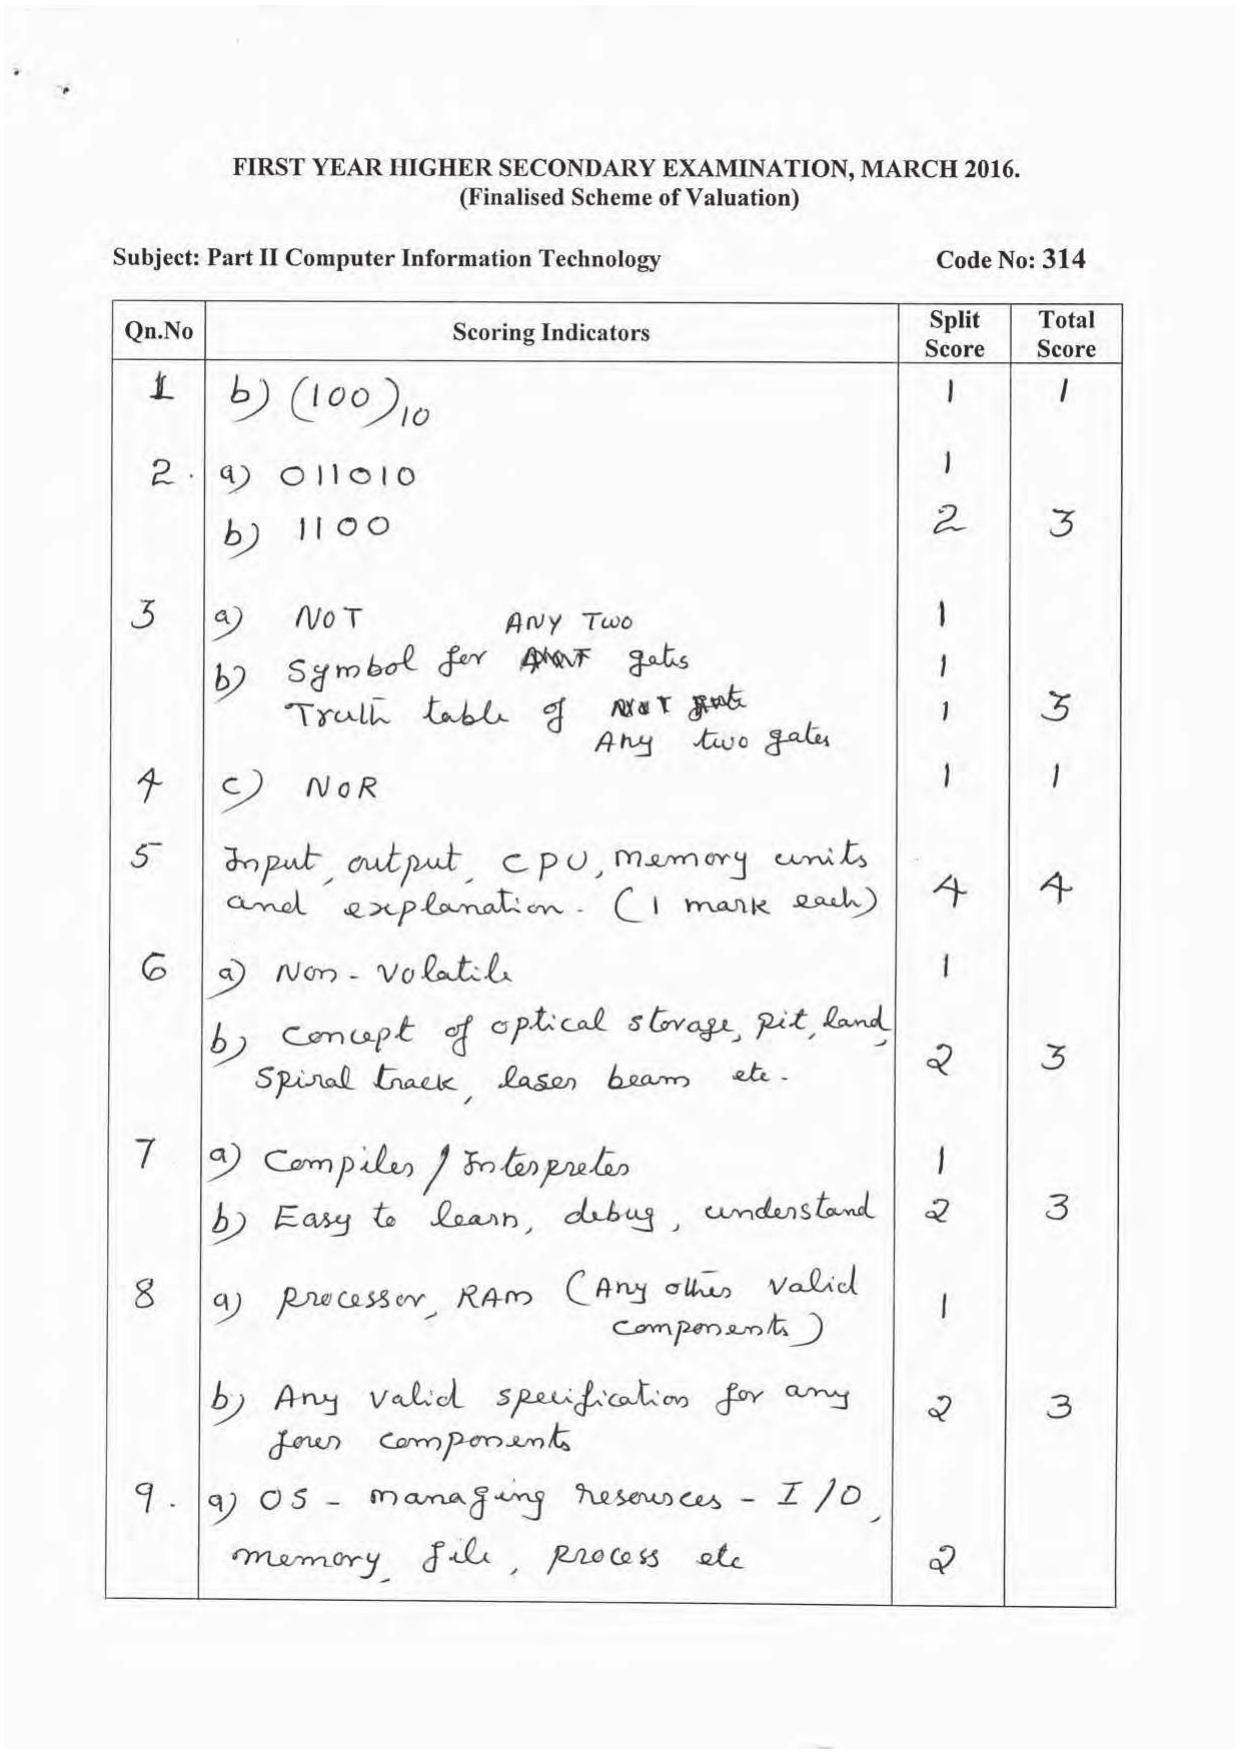 FIRST YEAR HIGHER SECONDARY EXAMINATION, MARCH 2016.
(Finalised Scheme of Valuation)
Subject: Part II Computer Information Technology Code No: 314
Qn.No Scoring Indicators Split Score Total Score
1 b) (100)10 1 1
2. a) 011010 1
b) 1100 2 3
3 a) NOT 1
ANY TWO
b) Symbol for gates 1
Truth table of 1 3
Any two gates
4 c) NOR 1 1
5 Input, output, CPU, memory units
and explanation. (1 mark each) 4 4
6 a) Non-volatile 1
b) Concept of optical storage, pit, land,
spiral track, laser beam etc. 2 3
7 a) Compiler / Interpreter 1
b) Easy to learn, debug, understand 2 3
8 a) Processor, RAM (Any other valid
components) 1
b) Any valid specification for any
four components 2 3
9. a) OS - managing resources - I/O,
memory, file, process etc 2